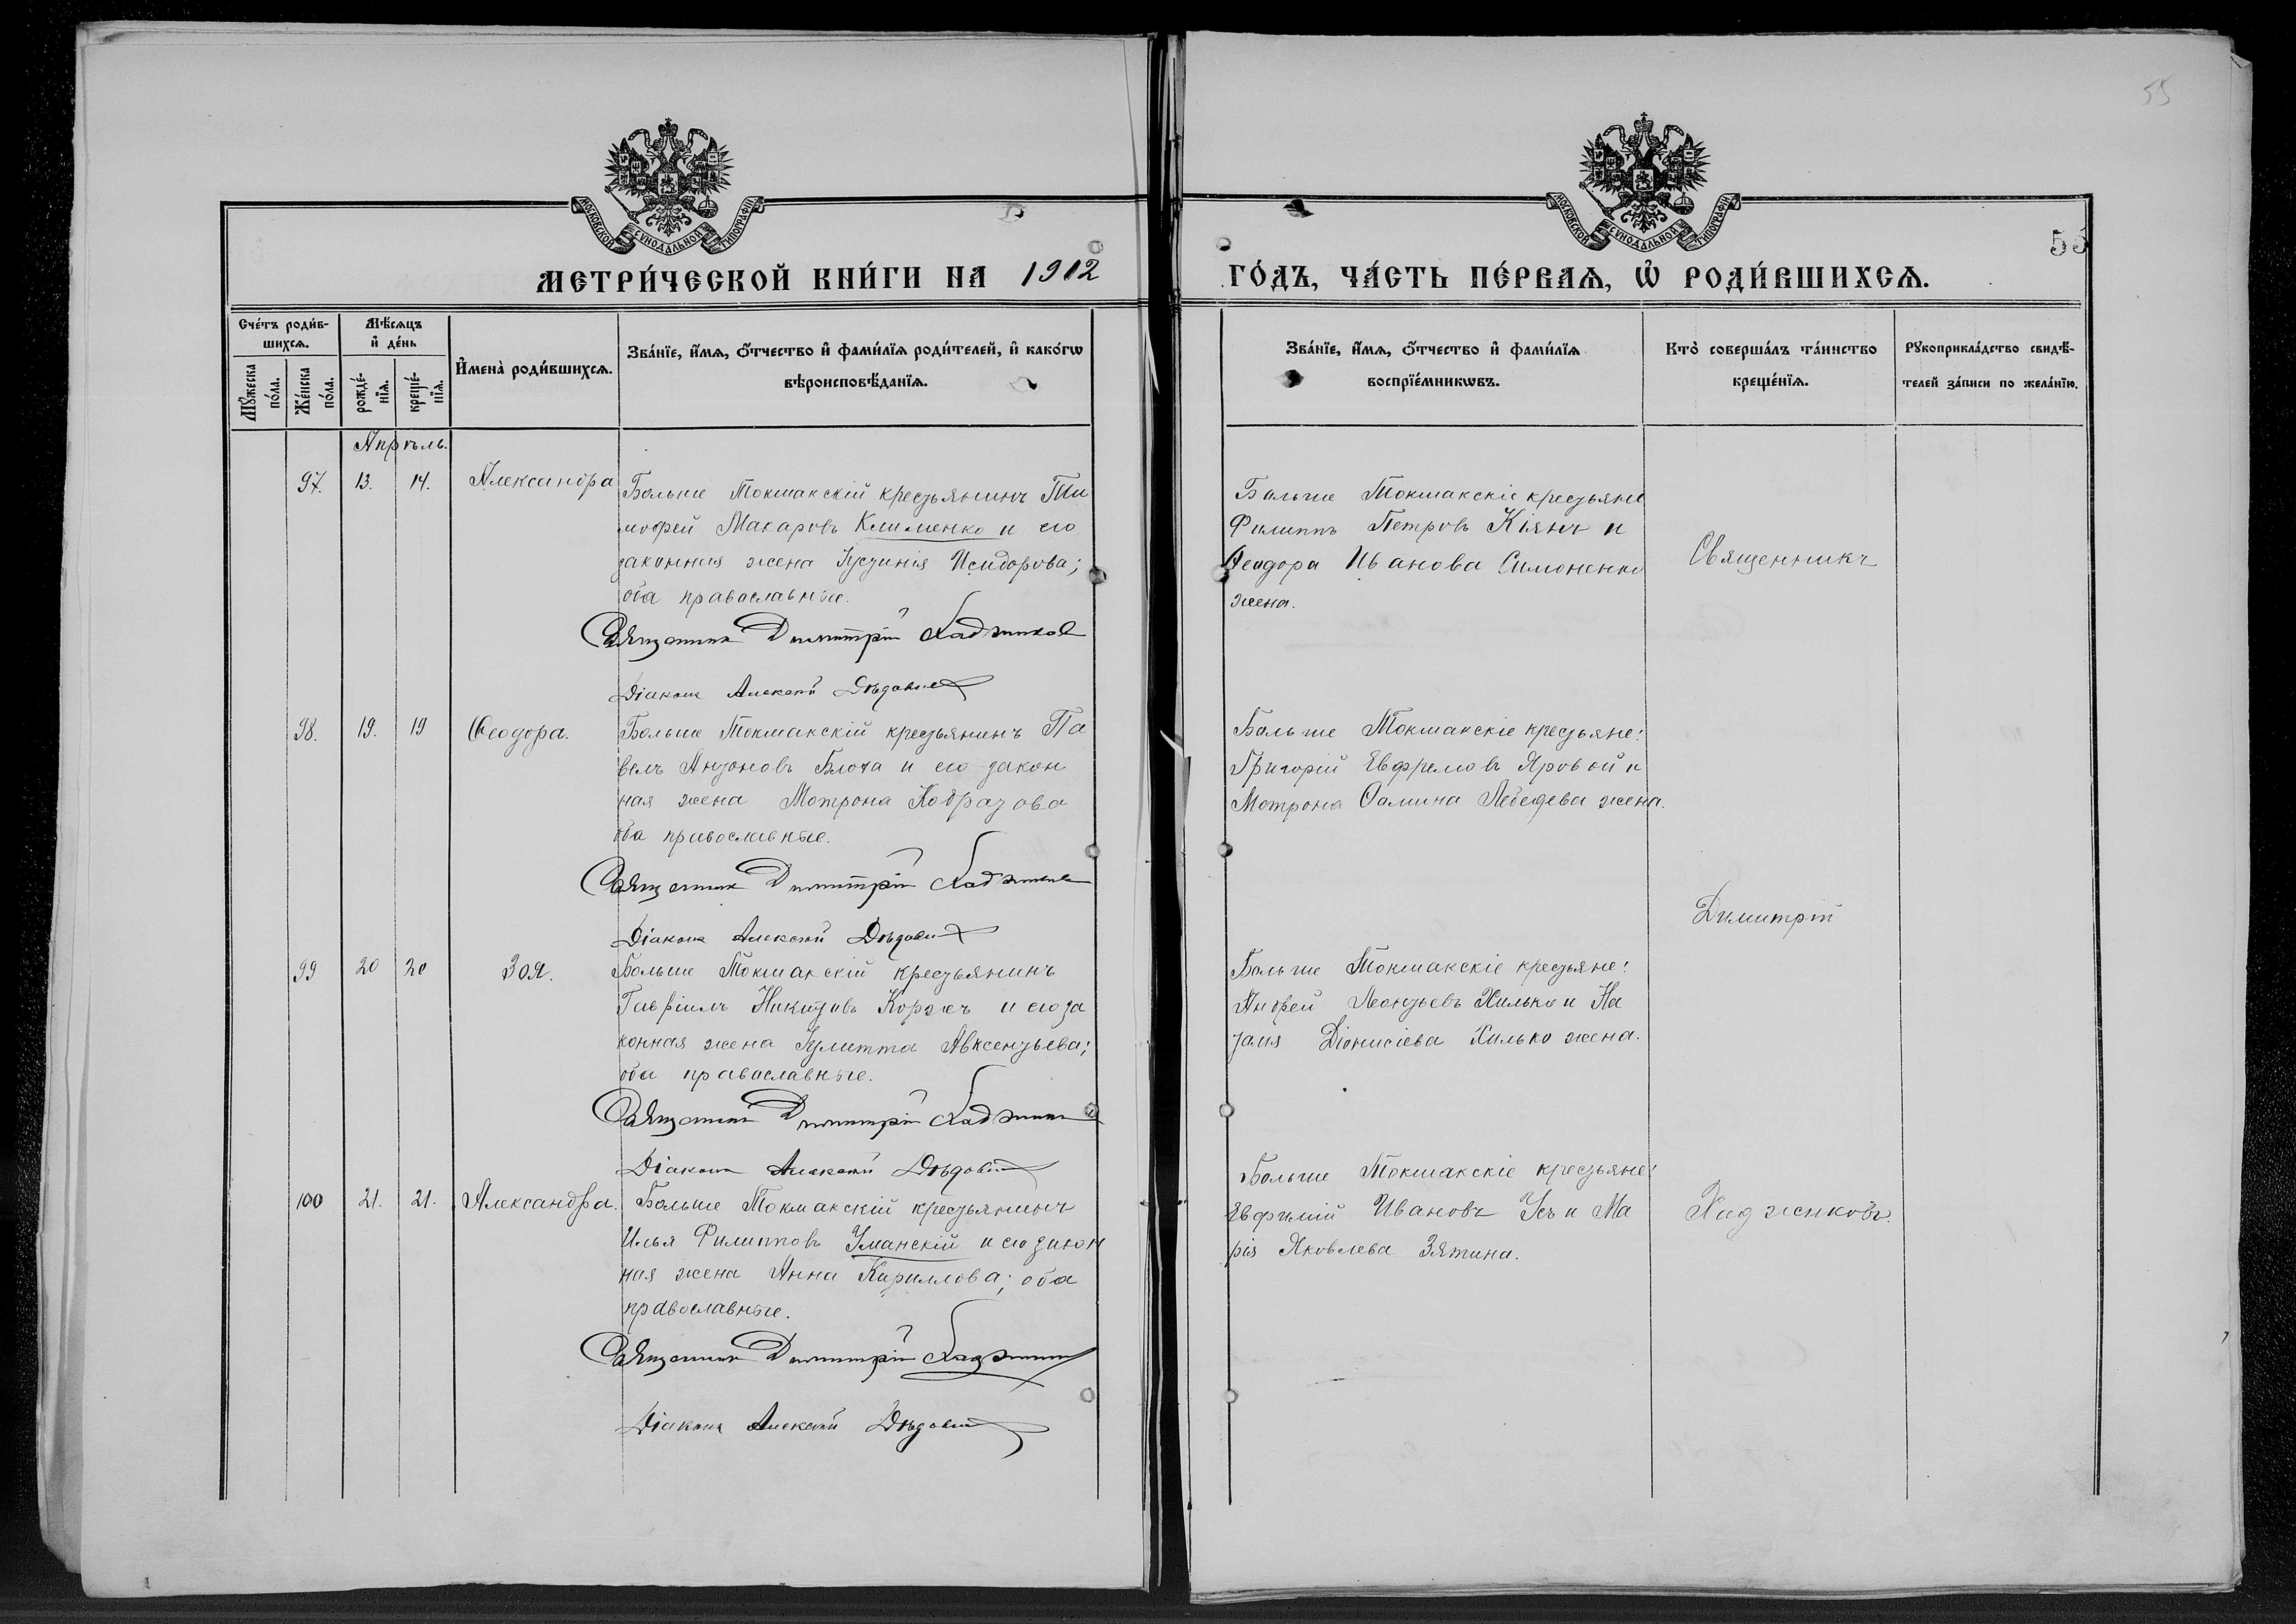 55
МОСКОВСКОЙ СУНОДАЛЬНОЙ ТИПОГРАФІИ
МОСКОВСКОЙ СУНОДАЛЬНОЙ ТИПОГРАФІИ
55
МЕТРИ́ЧЕСКОЙ КНИ́ГИ НА 1912
ГО́ДЪ, ЧА́СТЬ ПЕ́РВАѦ, Ѡ҆ РОДИ́ВШИХСѦ.
Сче́тъ роди́в-
шихсѧ.
Мѣ́сѧцъ
и҆ де́нь
Мꙋ́жеска
по́ла.
Же́нска
по́ла.
рожде́-
нїѧ.
креще́-
нїѧ.
И҆мена̀ роди́вшихсѧ.
Зва́нїе, и҆́мѧ, ѻ҆́тчество и҆ фами́лїѧ роди́телей, и҆ како́гѡ
вѣроисповѣ́данїѧ.
Зва́нїе, и҆́мѧ, ѻ҆́тчество и҆ фами́лїѧ
воспрїе́мникѡвъ.
Кто̀ соверша́лъ та́инство
креще́нїѧ.
Рꙋкоприкла́дство свидѣ́-
телей за́писи по жела́нїю.
Апрѣль.
97. 13. 14. Александра
Больше Токмакскій крестьянинъ Ти
мофей Макаровъ Клименко и его
законная жена Іустинія Исидорова;
оба православные.
Священникъ Димитрій Хаджиковъ
Діаконъ Алексій
Больше Токмакскіе крестьяне
Филиппъ Петровъ Кіянъ и
Ѳеодора Иванова Симоненко
жена.
Священникъ
98. 19. 19 Ѳеодора.
Больше Токмакскій крестьянинъ Па
велъ Антоновъ Блоха и его закон
ная жена Мотрона
оба православные.
Священникъ Димитрій
Діаконъ Алексій
Больше Токмакскіе крестьяне:
Григорій Евфремовъ Яровой и
Мотрона Ѳомина Лебедева жена.
Димитрій
99 20 20 Зоя.
Больше Токмакскій крестьянинъ
Гавріилъ Никитовъ Коржъ и его за
конная жена Іулитта Авксентьева;
оба православные.
Священникъ Димитрій
Діаконъ Алексій
Больше Токмакскіе крестьяне:
Андрей Леонтьевъ Хилько и На
талія Діонисіева Хилько жена.
100 21. 21. Александра.
Больше Токмакскій крестьянинъ
Илья Филипповъ Уманскій и его закон
ная жена Анна Кириллова; оба
православные.
Священникъ Димитрій
Діаконъ Алексій
Больше Токмакскіе крестьяне:
Евфимій Ивановъ Усъ и Ма
рія Яковлева Зятина.
Хаджиковъ.